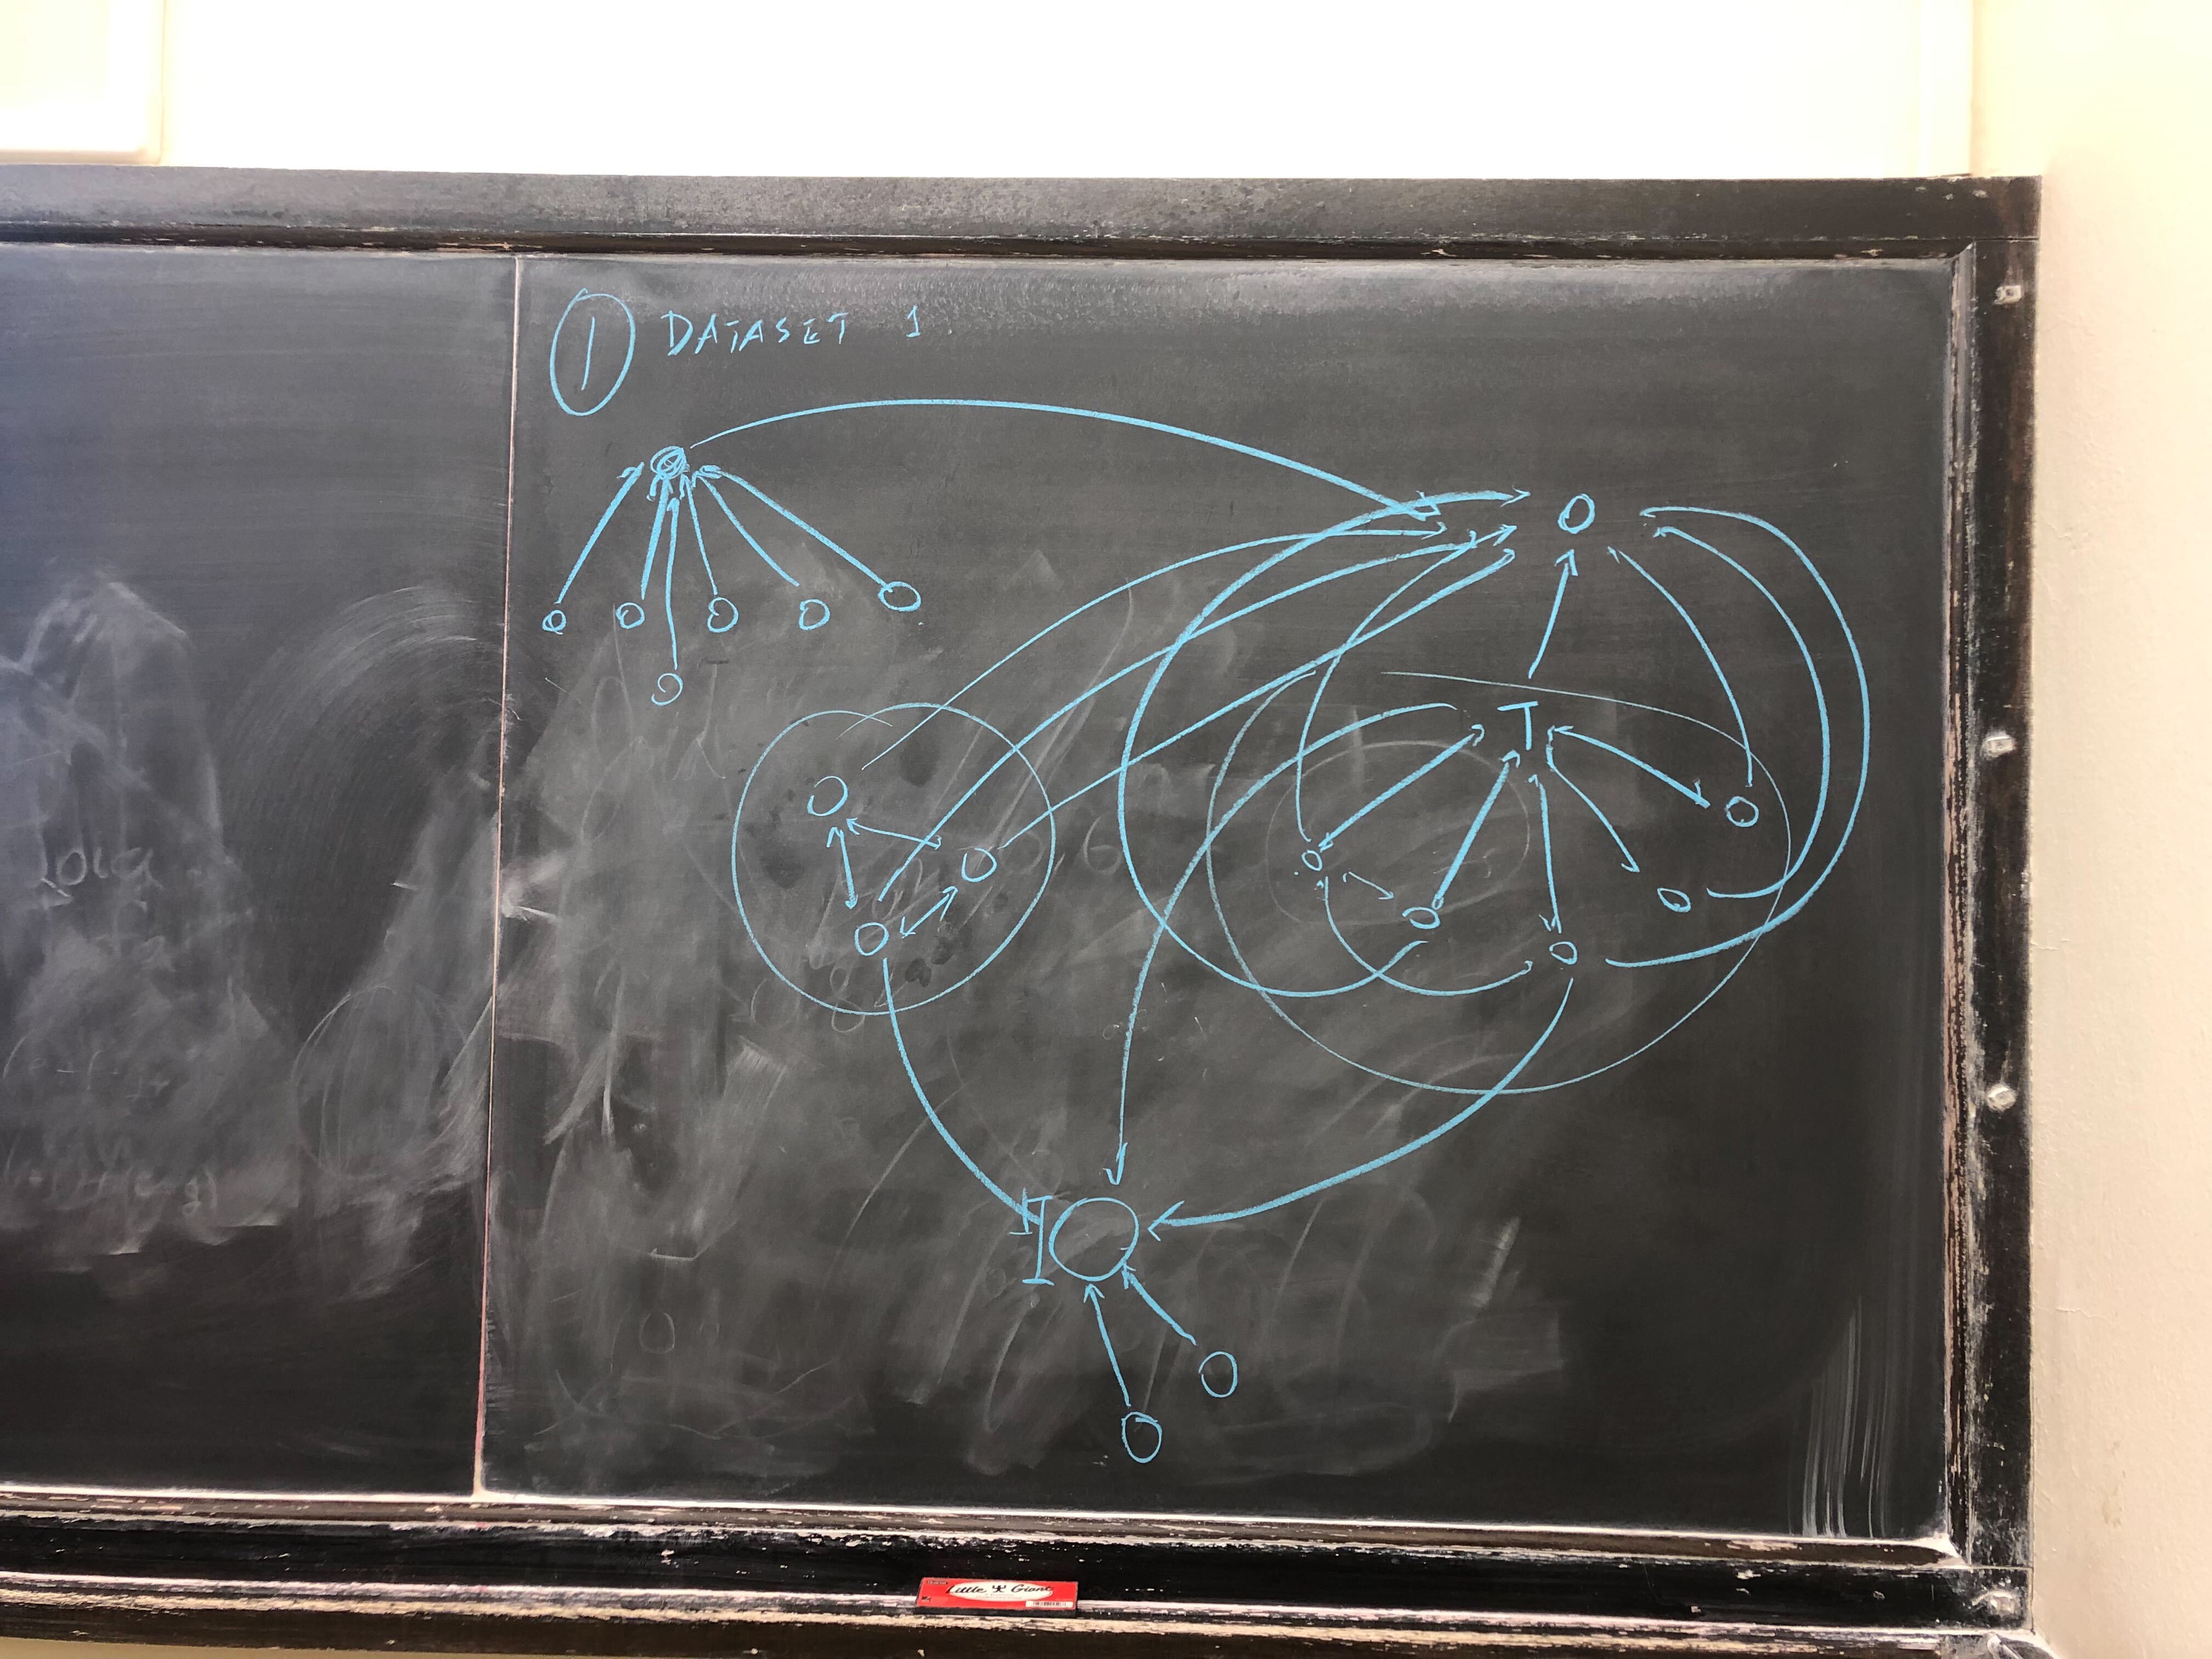 1 DATASET 1
T
I
Little Giant